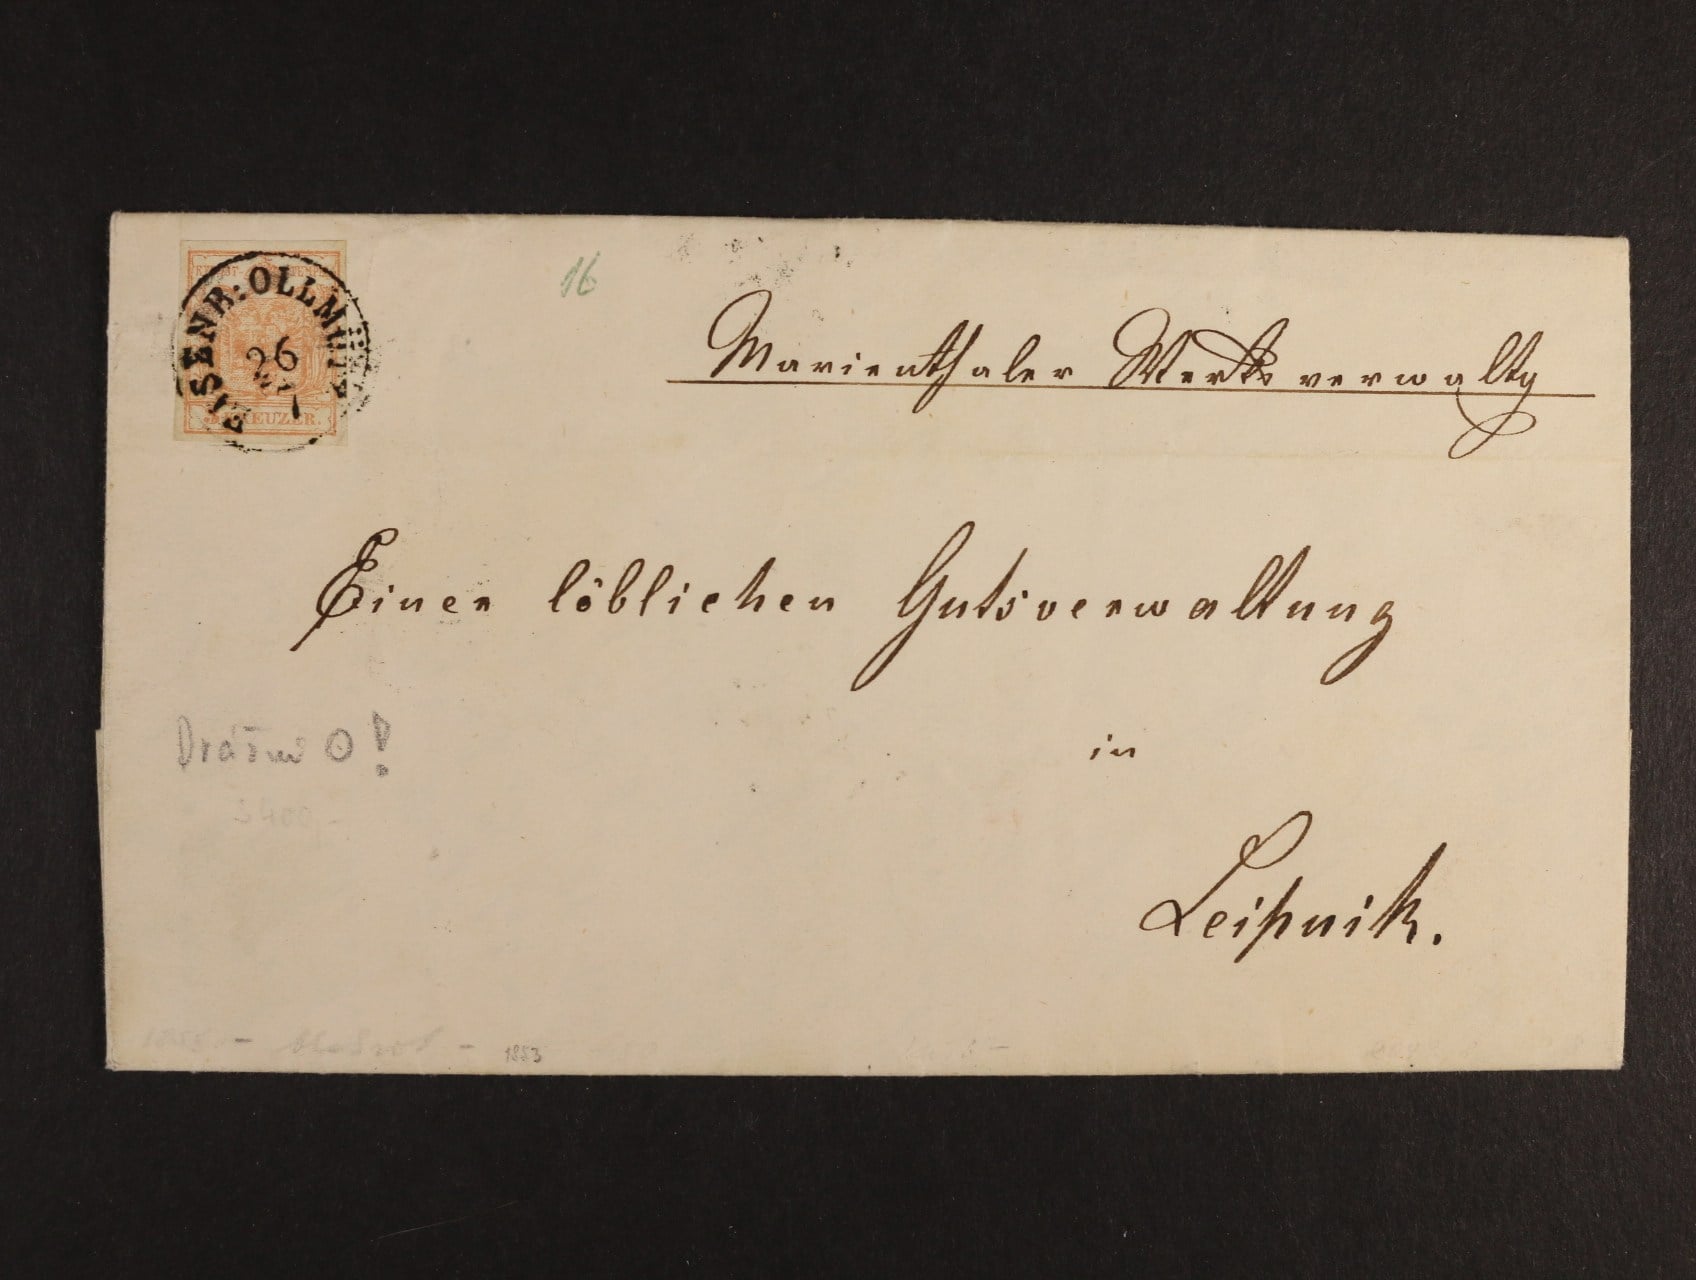 16
EISENB: OLLMÜTZ
26
KREUZER.
Marienthaler Werksverwaltg
Einer löblichen Gutsverwaltung
in
Leipnik.
O!
1853